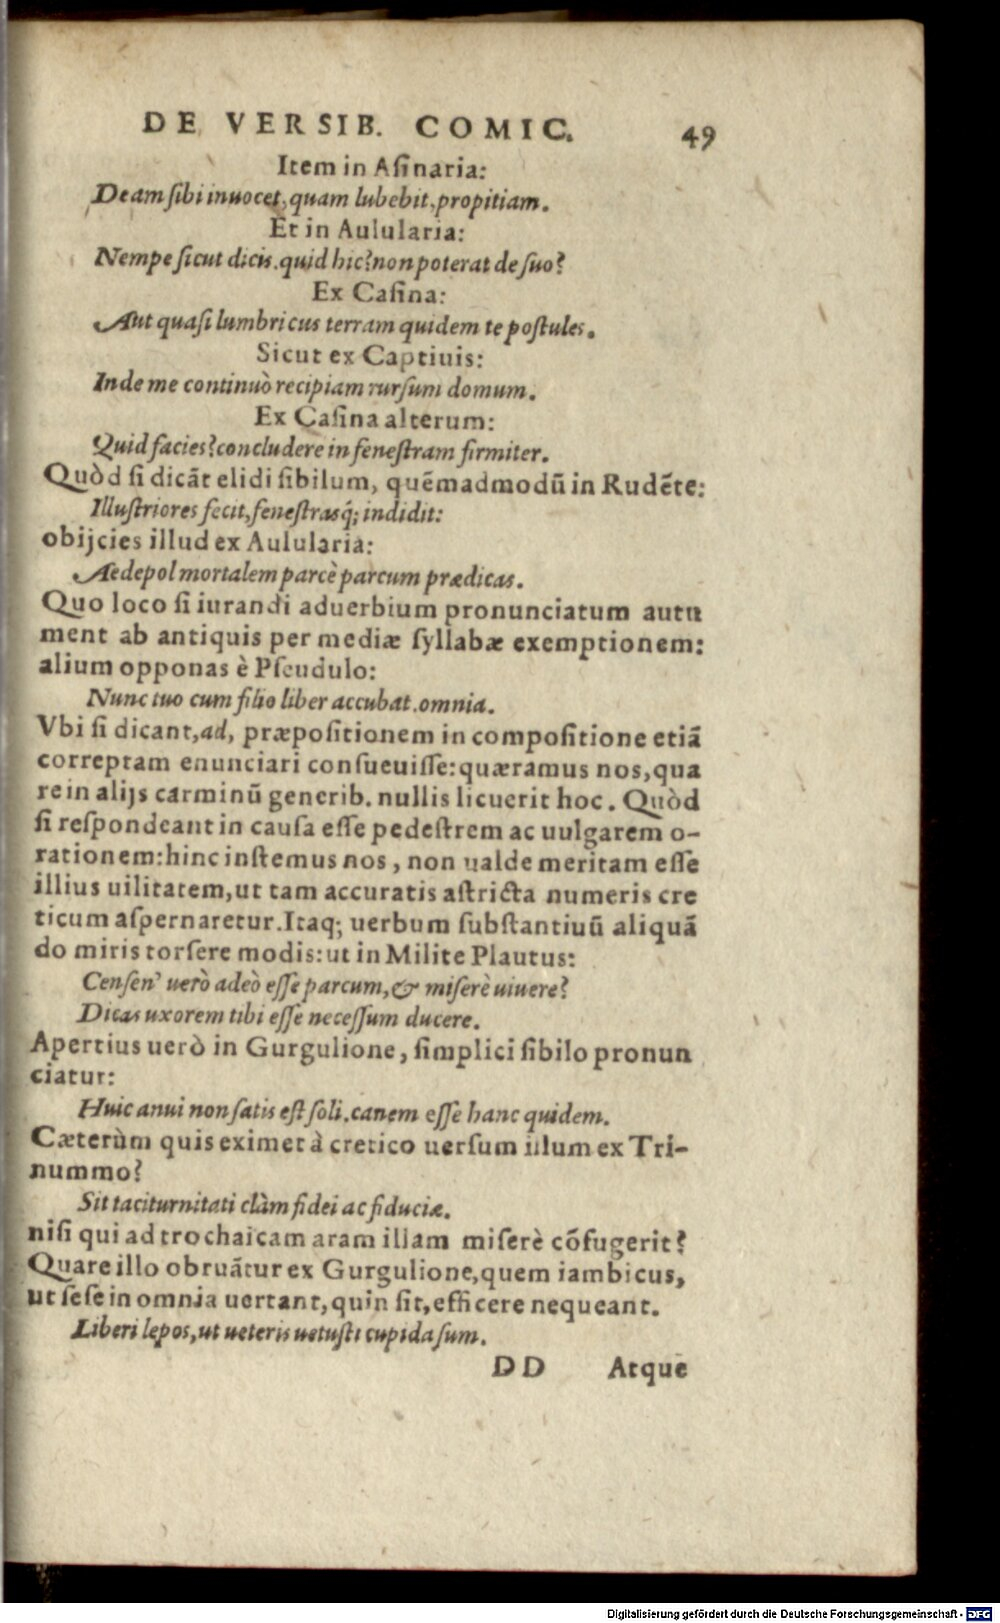 DE VERSIB. COMIC. 49
Item in Asinaria:
Deam sibi inuocet, quam lubebit, propitiam.
Et in Aulularia:
Nempe sicut dicis. quid hic? non poterat de suo?
Ex Casina:
Aut quasi lumbricus terram quidem te postules.
Sicut ex Captiuis:
Inde me continuò recipiam rursum domum.
Ex Casina alterum:
Quid facies? concludere in fenestram firmiter.
Quòd si dicãt elidi sibilum, quẽmadmodũ in Rudẽte:
Illustriores fecit, fenestrasq́; indidit:
obijcies illud ex Aulularia:
Aedepol mortalem parcè parcum prædicas.
Quo loco si iurandi aduerbium pronunciatum autu
ment ab antiquis per mediæ syllabæ exemptionem:
alium opponas è Pseudulo:
Nunc tuo cum filio liber accubat. omnia.
Vbi si dicant, ad, præpositionem in compositione etiã
correptam enunciari consueuisse: quæramus nos, qua
re in alijs carminũ generib. nullis licuerit hoc. Quòd
si respondeant in causa esse pedestrem ac uulgarem o-
rationem: hinc instemus nos, non ualde meritam esse
illius uilitatem, ut tam accuratis astricta numeris cre
ticum aspernaretur. Itaq; uerbum substantiuũ aliquã
do miris torsere modis: ut in Milite Plautus:
Censen' uerò adeò esse parcum, & miserè uiuere?
Dicas uxorem tibi esse necessum ducere.
Apertius uerò in Gurgulione, simplici sibilo pronun
ciatur:
Huic anui non satis est soli. canem esse hanc quidem.
Cæterùm quis eximet à cretico uersum illum ex Tri-
nummo?
Sit taciturnitati clàm fidei ac fiduciæ.
nisi qui ad trochaicam aram illam miserè cõfugerit?
Quare illo obruãtur ex Gurgulione, quem iambicus,
ut sese in omnia uertant, quin sit, efficere nequeant.
Liberi lepos, ut ueteris uetusti cupida sum.
DD Atque
Digitalisierung gefördert durch die Deutsche Forschungsgemeinschaft - DFG